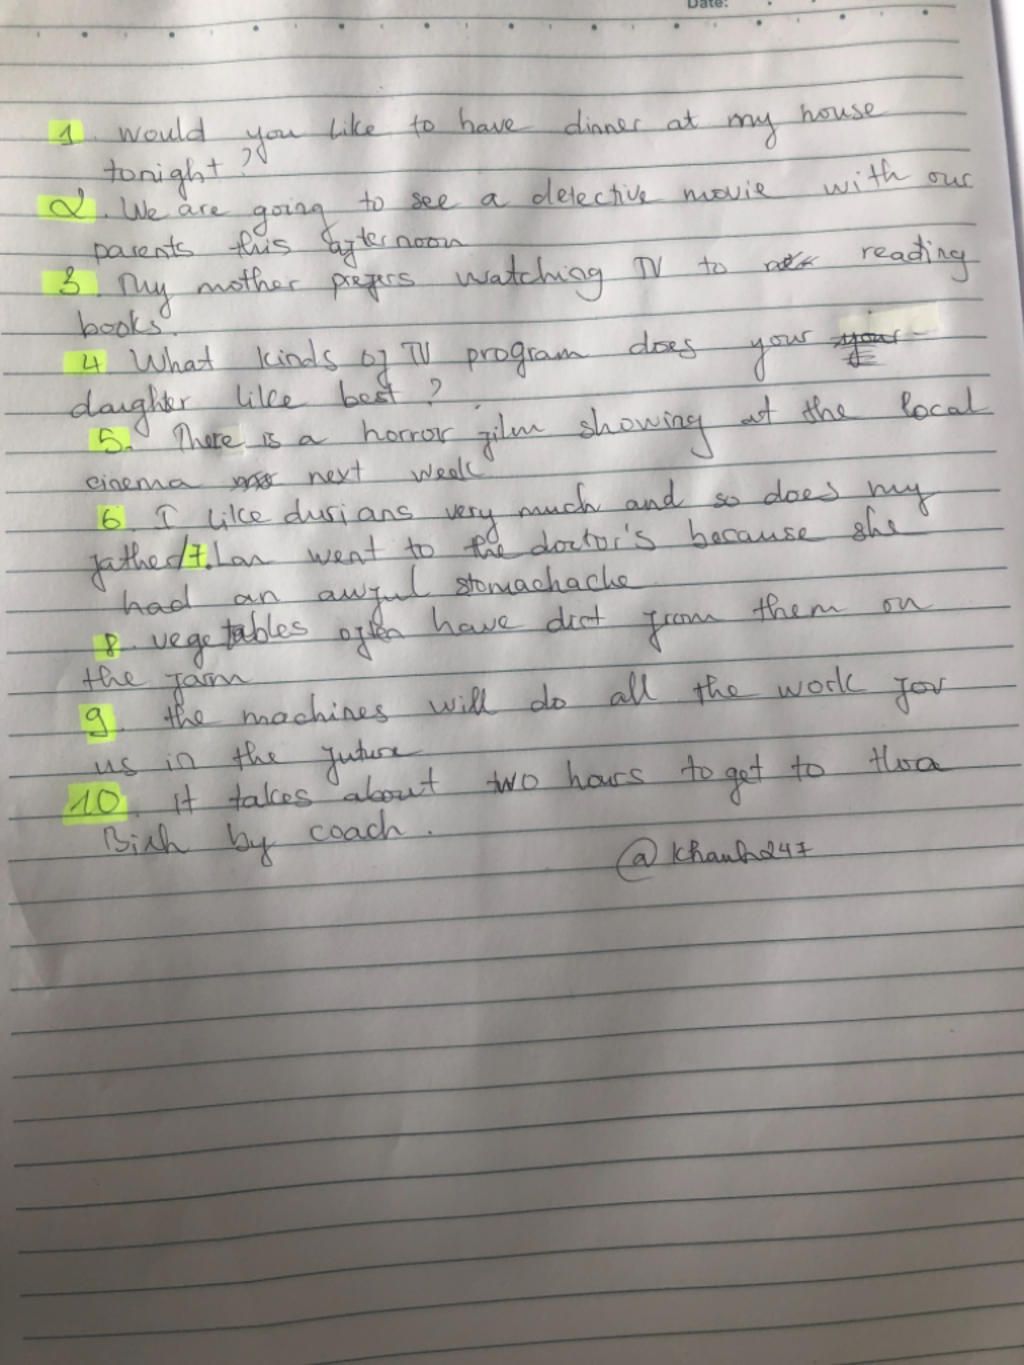 Date:
1. Would you like to have dinner at my house
tonight?
2. We are going to see a detective movie with our
parents this afternoon
3. My mother prefers watching TV to reading
books.
4 What kinds of TV program does your
daughter like best?
5. There is a horror film showing at the local
cinema next week
6. I like durians very much and so does my
father/7. Lan went to the doctor's because she
had an awful stomachache
8. vegetables often have dirt from them on
the farm
9. the machines will do all the work for
us in the future
10. it takes about two hours to get to
by coach.
@Khanh247